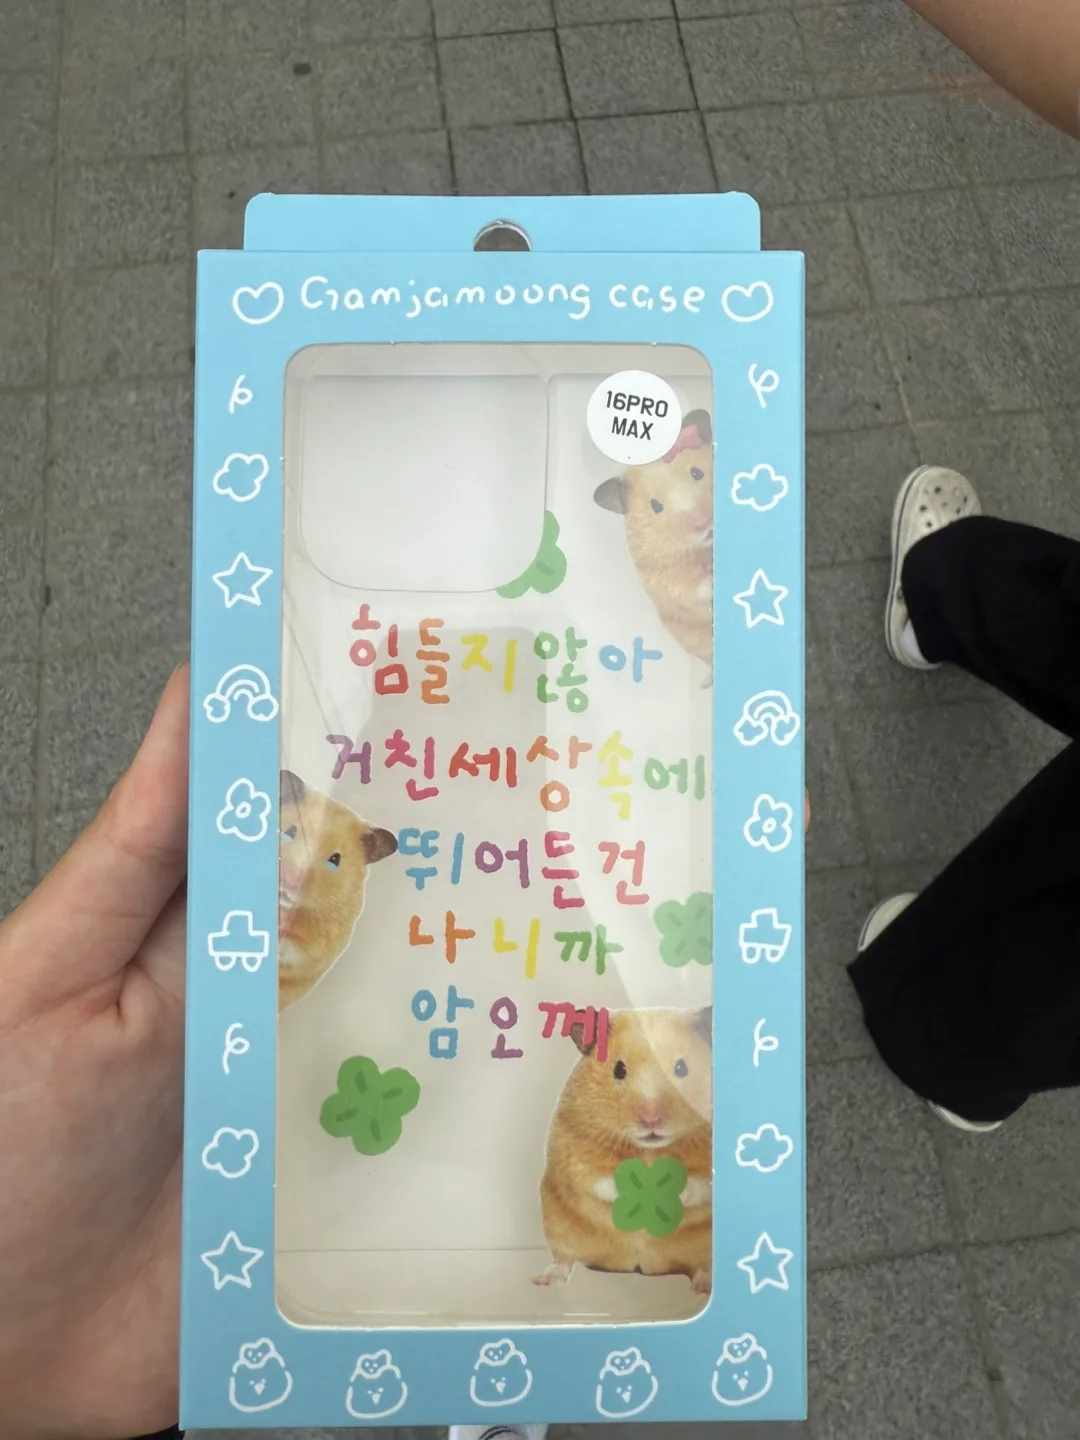 Gamjamoong case
16PRO
MAX
힘들지않아
거친세상속에
뛰어든건
나니까
암오께